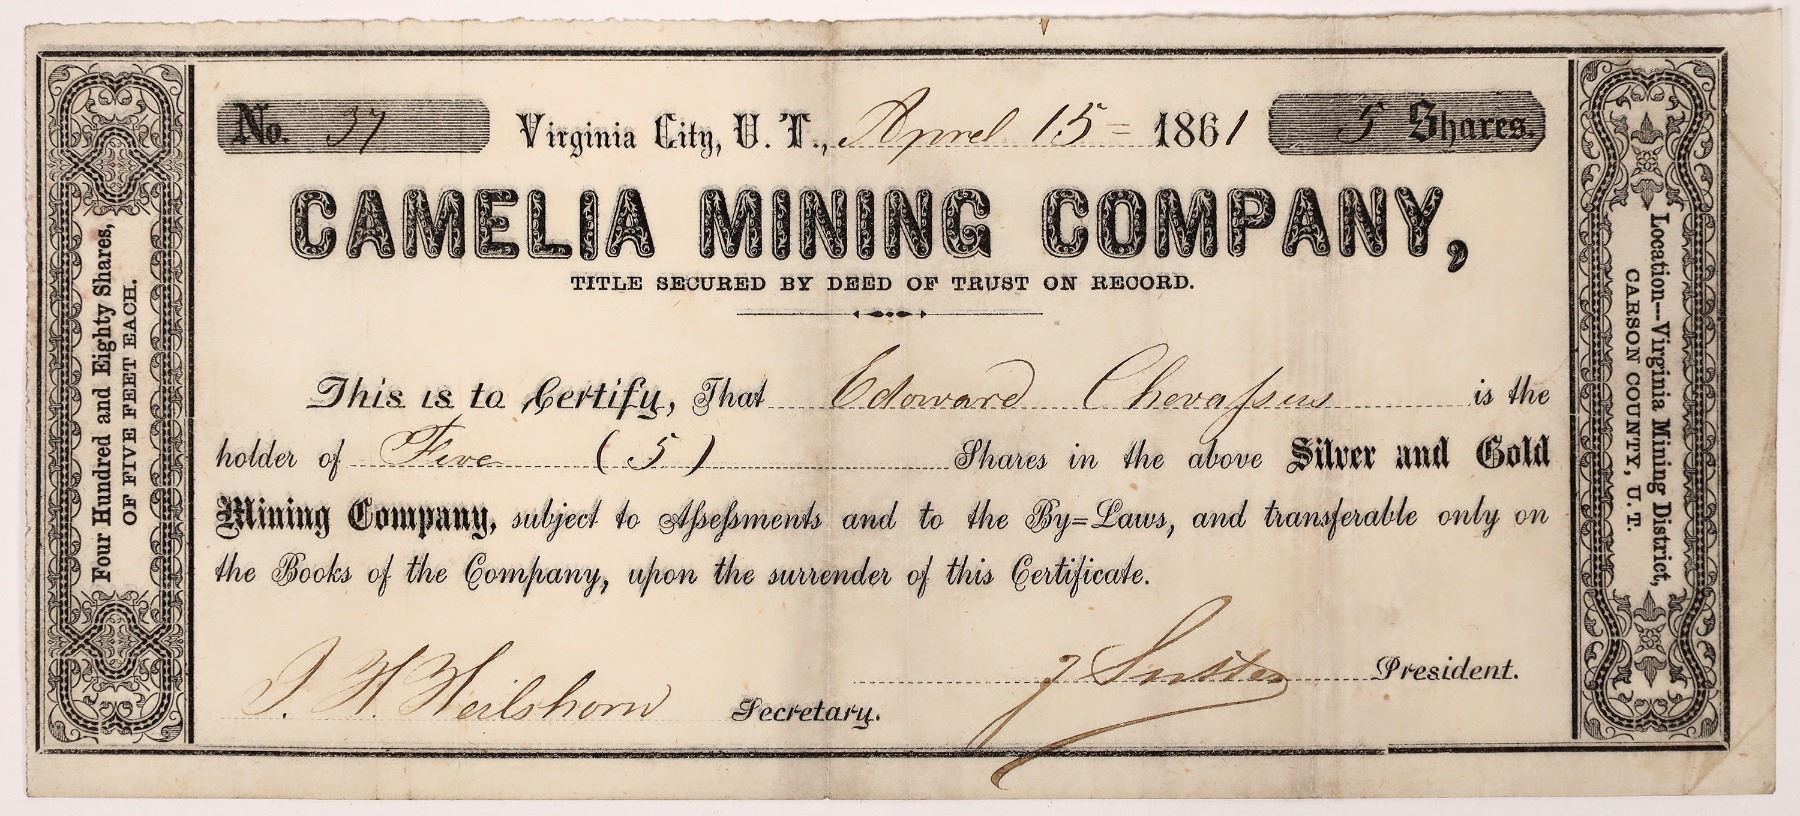 No. 37 Virginia City, U. T., April 15 = 1861 5 Shares.
CAMELIA MINING COMPANY,
TITLE SECURED BY DEED OF TRUST ON RECORD.
This is to Certify, That Edoward Chevaſsus is the
holder of Five (5) Shares in the above Silver and Gold
Mining Company, subject to Aſseſsments and to the By=Laws, and transferable only on
the Books of the Company, upon the surrender of this Certificate.
J. H. Heilshorn Secretary.
President.
Four Hundred and Eighty Shares,
OF FIVE FEET EACH.
Location—Virginia Mining District,
CARSON COUNTY, U. T.